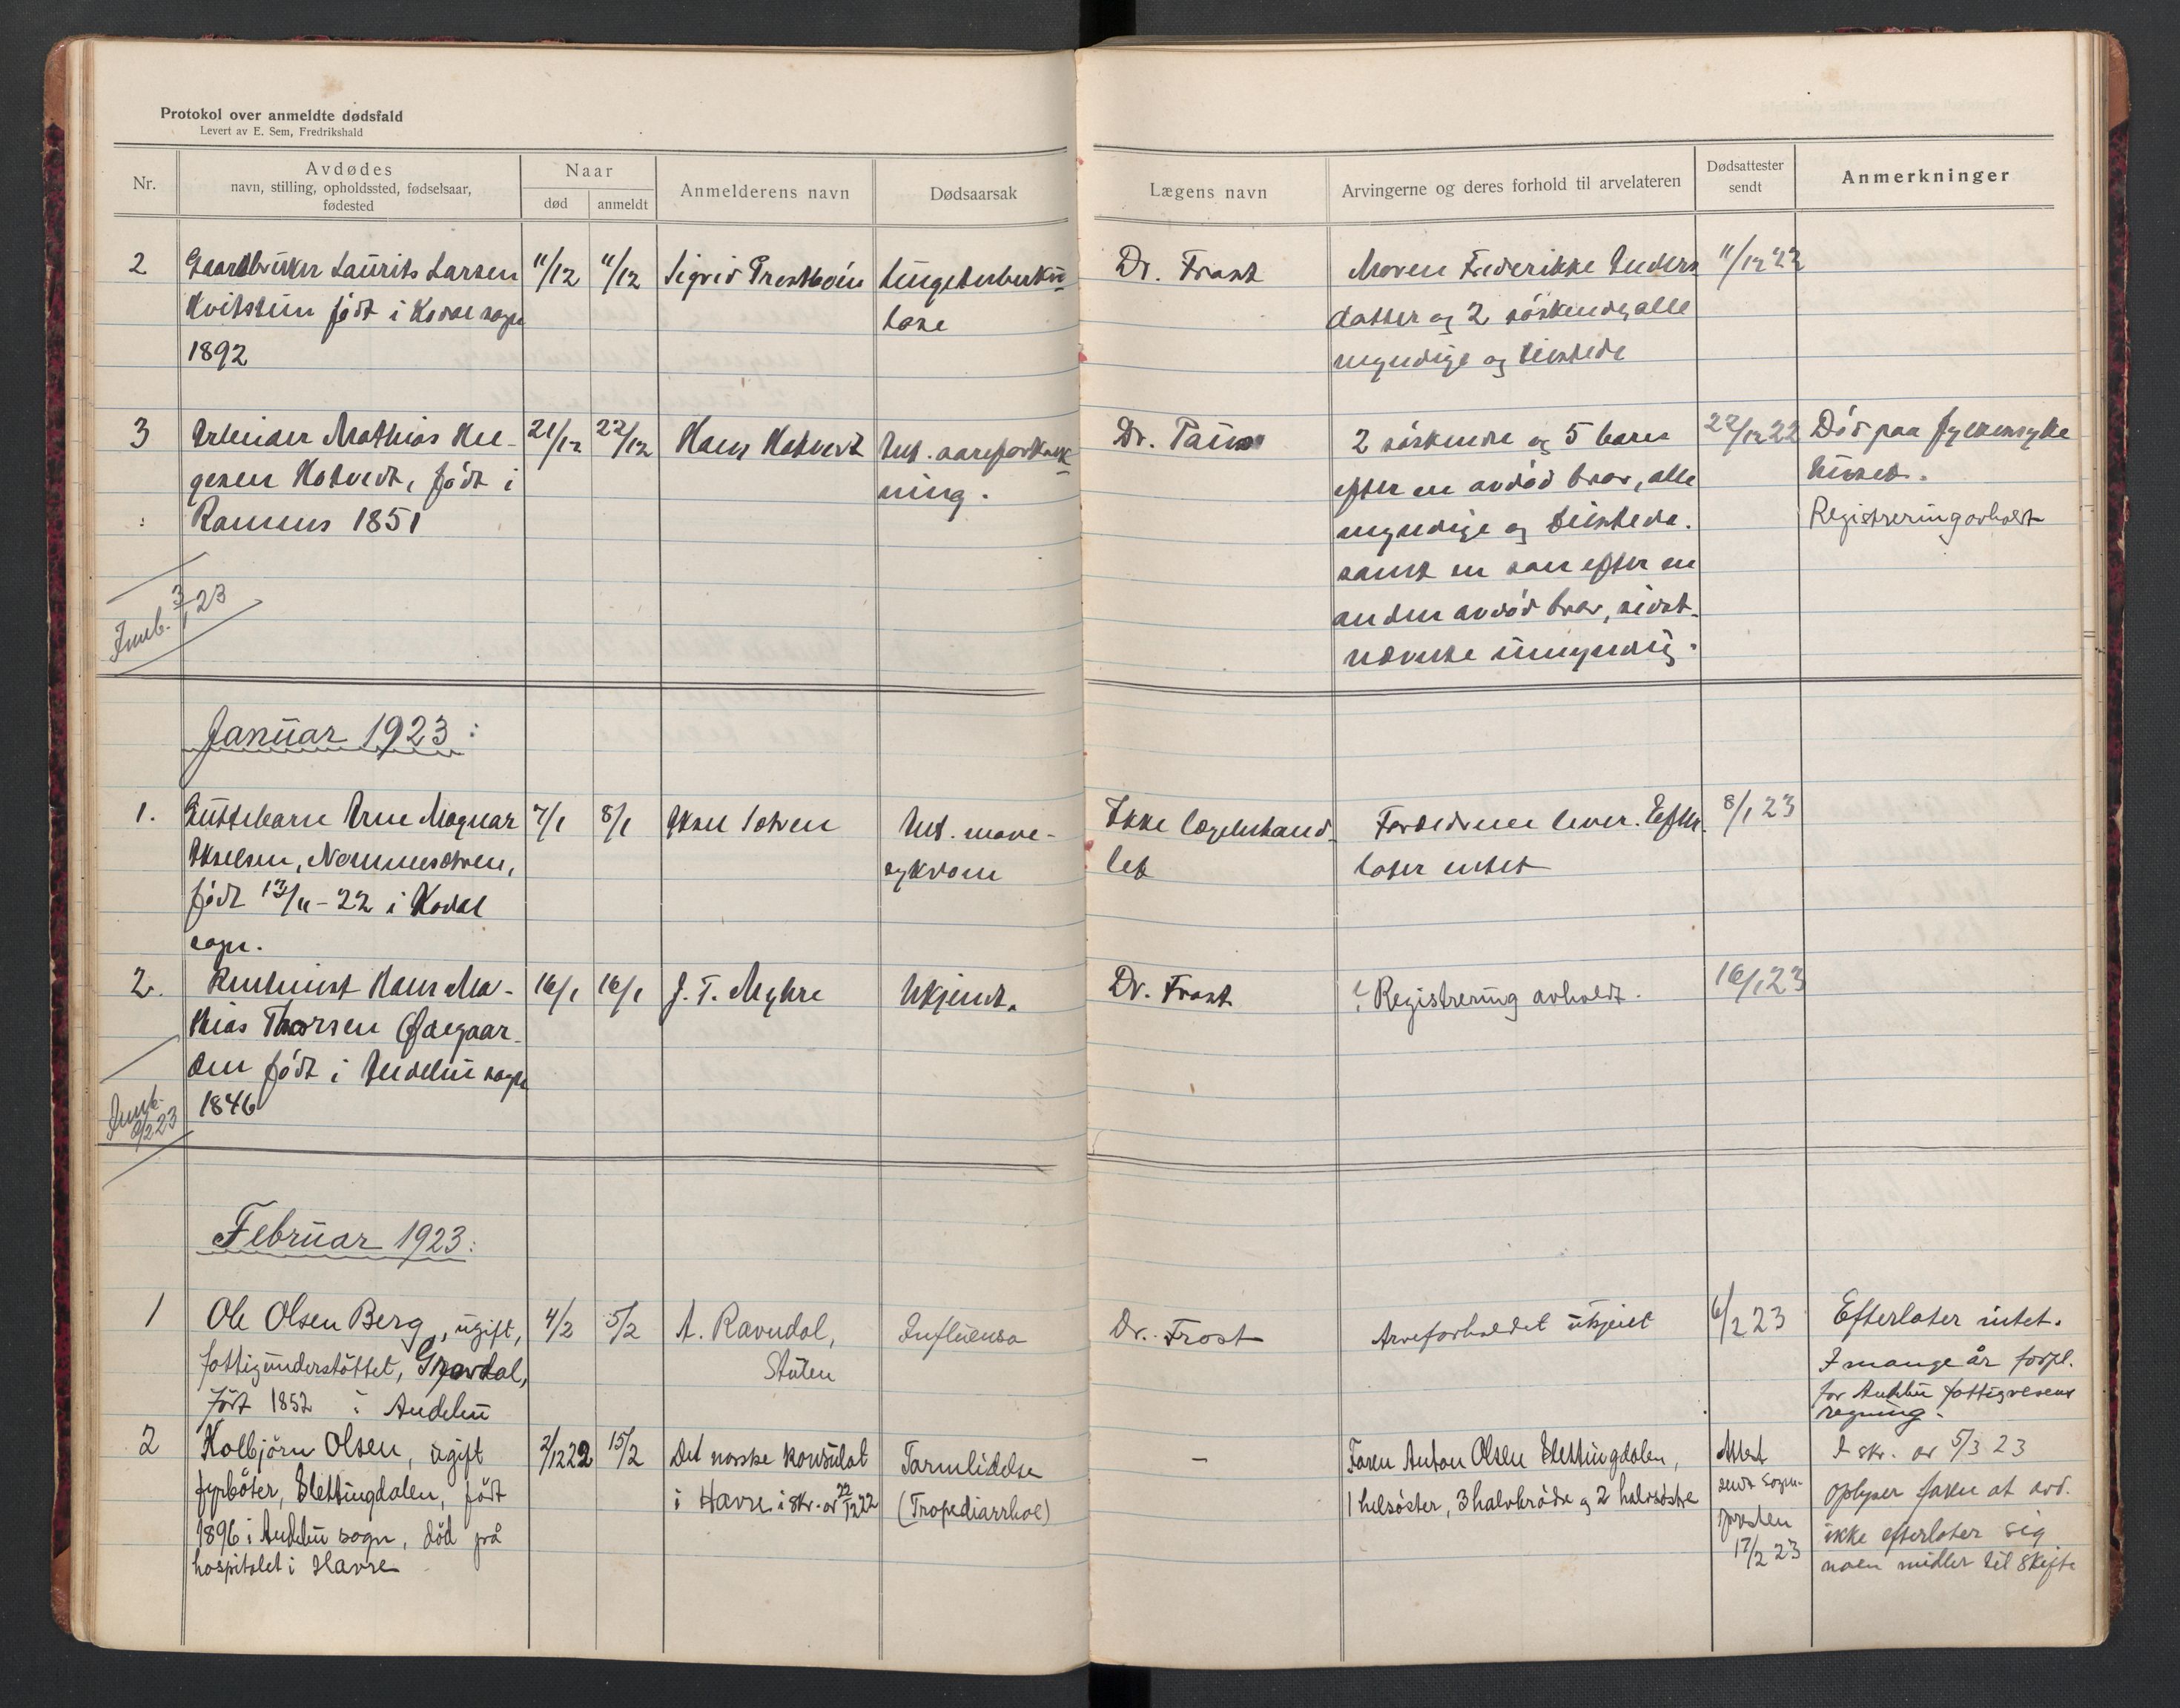 Protokol over anmeldte dødsfald
Levert av E. Sem, Fredrikshald
Nr.
Avdødes
navn, stilling, opholdssted, fødselsaar,
fødested
Naar
død
anmeldt
Anmelderens navn
Dødsaarsak
Lægens navn
Arvingerne og deres forhold til arvelateren
Dødsattester
sendt
Anmerkninger
2
Gaardbruker Laurits Larsen
Kvitstein født i Kodal sogn
1892
11/12
11/12
Sigrid Prestbøen
Lungetuberku
lose
Dr. Frost
Moren Frederikke Anders
datter og 2 søskende, alle
myndige og tilstede
11/12 22
3
Arbeider Mathias Hel-
gesen Hotvedt, født i
Ramnes 1851
21/12
22/12
Hans Hotvedt
Ant. aareforkalk
ning.
Dr. Paus
2 søskende og 5 barn
efter en avdød bror, alle
myndige og tilstede.
samt en søn efter en
anden avdød bror, sidst-
nævnte umyndig.
22/12 22
Død paa fylkessyke
huset.
Registrering avholdt
Innb. 3/1 23
Januar 1923:
1.
Guttebarn Arne Magnar
Akselsen, Nommesotven,
født 13/11-22 i Kodal
sogn.
7/1
8/1
Aksel Sotven
Ant. mave-
sykdom
Ikke lægebehand
let
Forældrene lever. Efter-
later intet
8/1 23
2.
Rentenist Hans Ma-
thias Thorsen Ødegaar-
den født i Andebu sogn
1846
16/1
16/1
J. T. Myhre
Ukjendt.
Dr. Frost
? Registrering avholdt.
16/1 23
Innb. 2/2 23
Februar 1923:
1
Ole Olsen Berg, ugift,
fattigunderstøttet, Gravdal,
født 1852 i Andebu
4/2
5/2
A. Ravndal,
Stulen
Influensa
Dr. Frost
Arveforholdet ukjent
6/2 23
Efterlater intet.
I mange år forpl.
for Andebu fattigvesens
regning.
2
Kolbjørn Olsen, ugift
fyrbøter, Slettingdalen, født
1896 i Andebu sogn, død på
hospitalet i Havre
2/12 22
15/2
Det norske konsulat
i Havre i skr. av 22/12 22
Tarmlidelse
(Tropediarrhoe)
-
Faren Anton Olsen Slettingdalen,
1 helsøster, 3 halvbrødre og 2 halvsøstre
Attest
sendt sogne-
presten
17/2 23
I skr. av 5/3 23
oplyser faren at avd.
ikke efterlater sig
noen midler til skifte